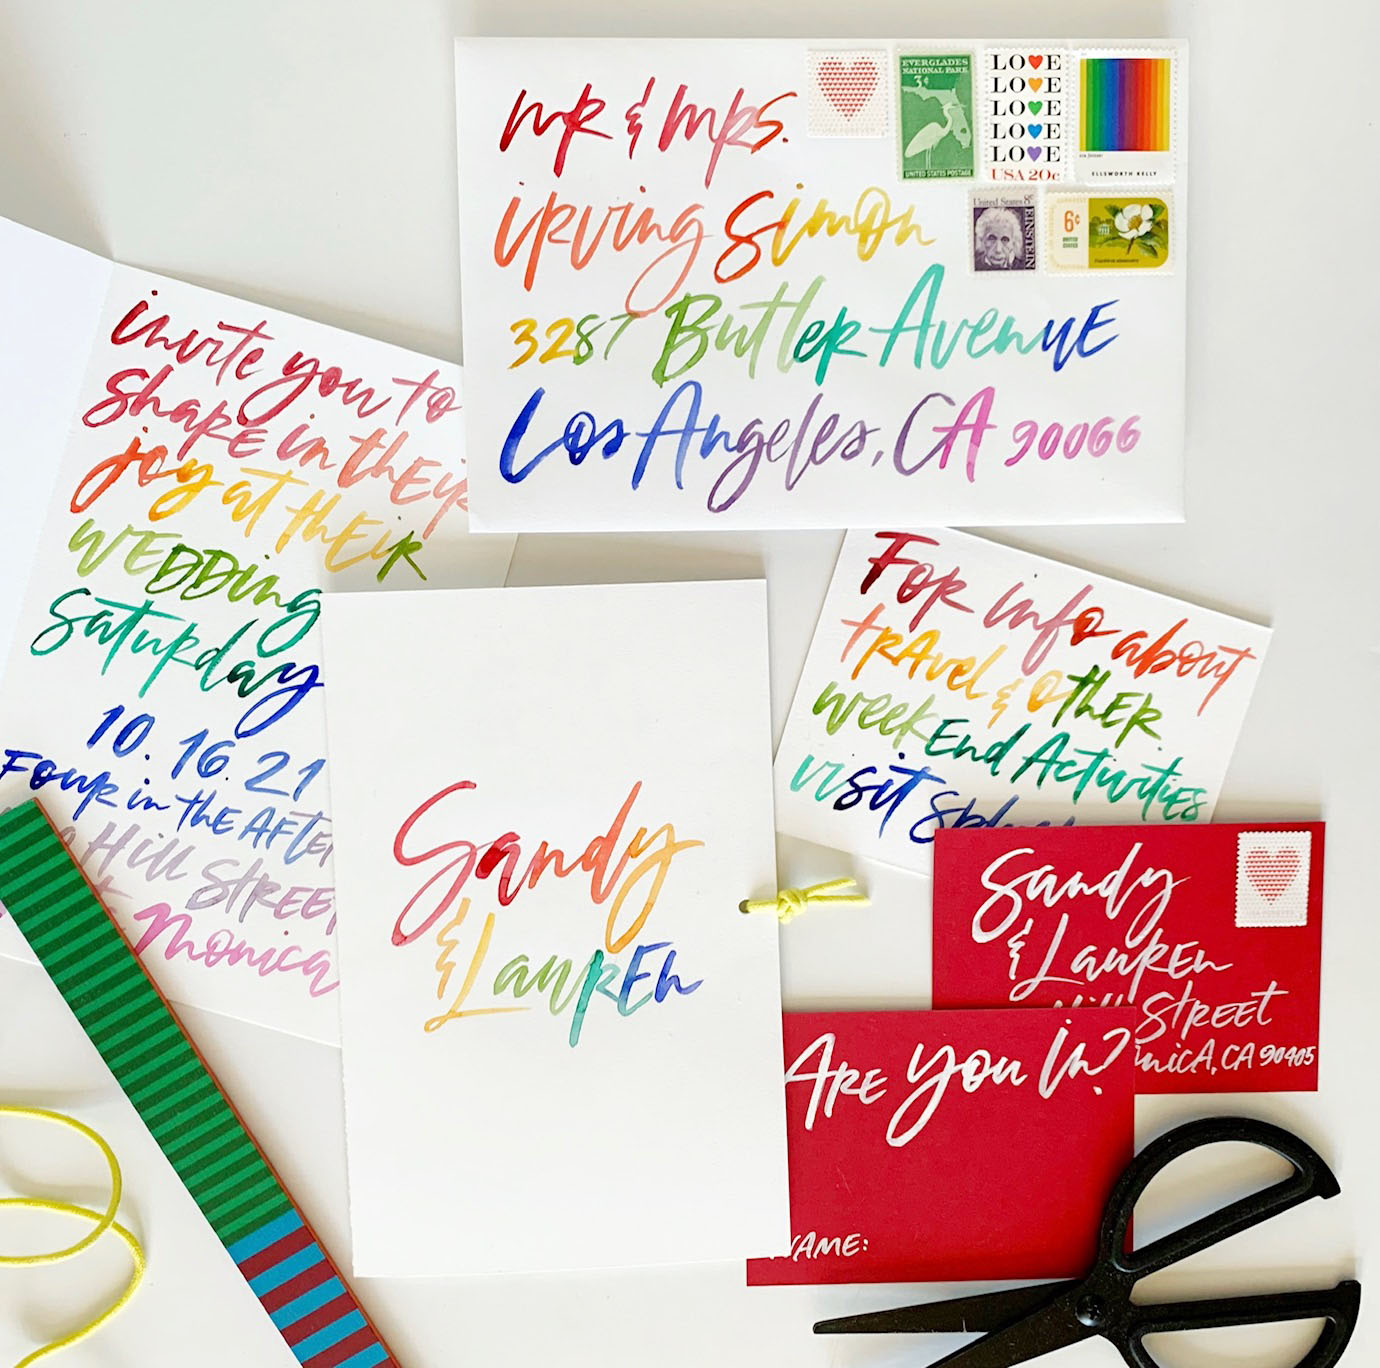 Mr & Mrs.
Irving Simon
3287 Butler Avenue
Los Angeles, CA 90066
EVERGLADES
NATIONAL PARK
3¢
UNITED STATES POSTAGE
LOVE
LOVE
LOVE
LOVE
LOVE
USA 20c
ELLSWORTH KELLY
United States 8¢
EINSTEIN
6¢
UNITED
STATES
invite you to
Share in their
joy at their
WEDDing
Saturday
10. 16. 21
Four in the
Hill STREET
Monica
Sandy
& LauREn
For info about
tRAvel & OthER
WeekEnd Activities
visit
Sandy
& LauREn
STREET
CA 90405
ARE you in?
NAME: